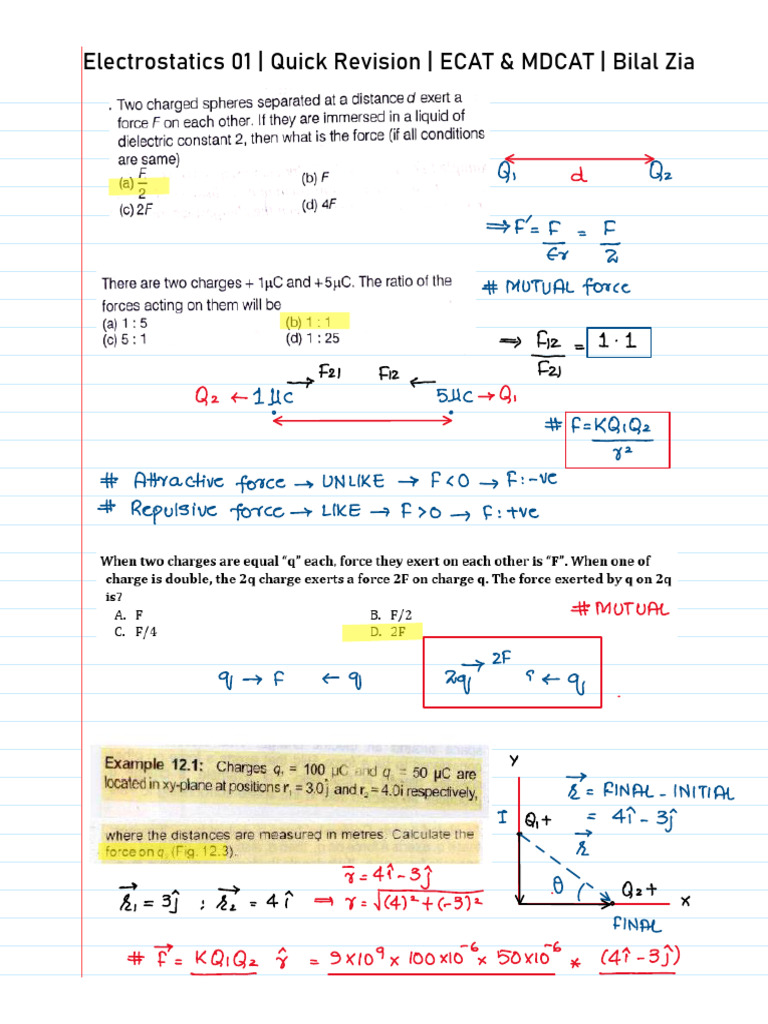 Electrostatics 01 | Quick Revision | ECAT & MDCAT | Bilal Zia
. Two charged spheres separated at a distance d exert a
force F on each other. If they are immersed in a liquid of
dielectric constant 2, then what is the force (if all conditions
are same)
(a) F/2 (b) F
(c) 2F (d) 4F
Q₁ d Q₂
⇒ F' = F/εr = F/2
# MUTUAL force
There are two charges + 1μC and +5μC. The ratio of the
forces acting on them will be
(a) 1 : 5 (b) 1 : 1
(c) 5 : 1 (d) 1 : 25
→ F₁₂/F₂₁ = 1 · 1
F₂₁ F₁₂
Q₂ ← 1μC 5μC → Q₁
# F = KQ₁Q₂/r²
# Attractive force → UNLIKE → F<0 → F:-ve
# Repulsive force → LIKE → F>0 → F:+ve
When two charges are equal “q” each, force they exert on each other is “F”. When one of
charge is double, the 2q charge exerts a force 2F on charge q. The force exerted by q on 2q
is?
# MUTUAL
A. F B. F/2
C. F/4 D. 2F
q → F ← q
2q → 2F ? ← q
Example 12.1: Charges q₁ = 100 μC and q = 50 μC are
located in xy-plane at positions r₁ = 3.0j and r₂ = 4.0i respectively,
where the distances are measured in metres. Calculate the
force on q (Fig. 12.3).
Y
I Q₁+
r⃗
θ Q₂+
X
FINAL
r⃗ = FINAL - INITIAL
= 4î - 3ĵ
r⃗₁ = 3ĵ : r⃗₂ = 4î
r̄ = 4î - 3ĵ
⇒ r = √(4)²+(-3)²
# F⃗ = KQ₁Q₂ r̂ = 9×10⁹ × 100×10⁻⁶ × 50×10⁻⁶ * (4î - 3ĵ)